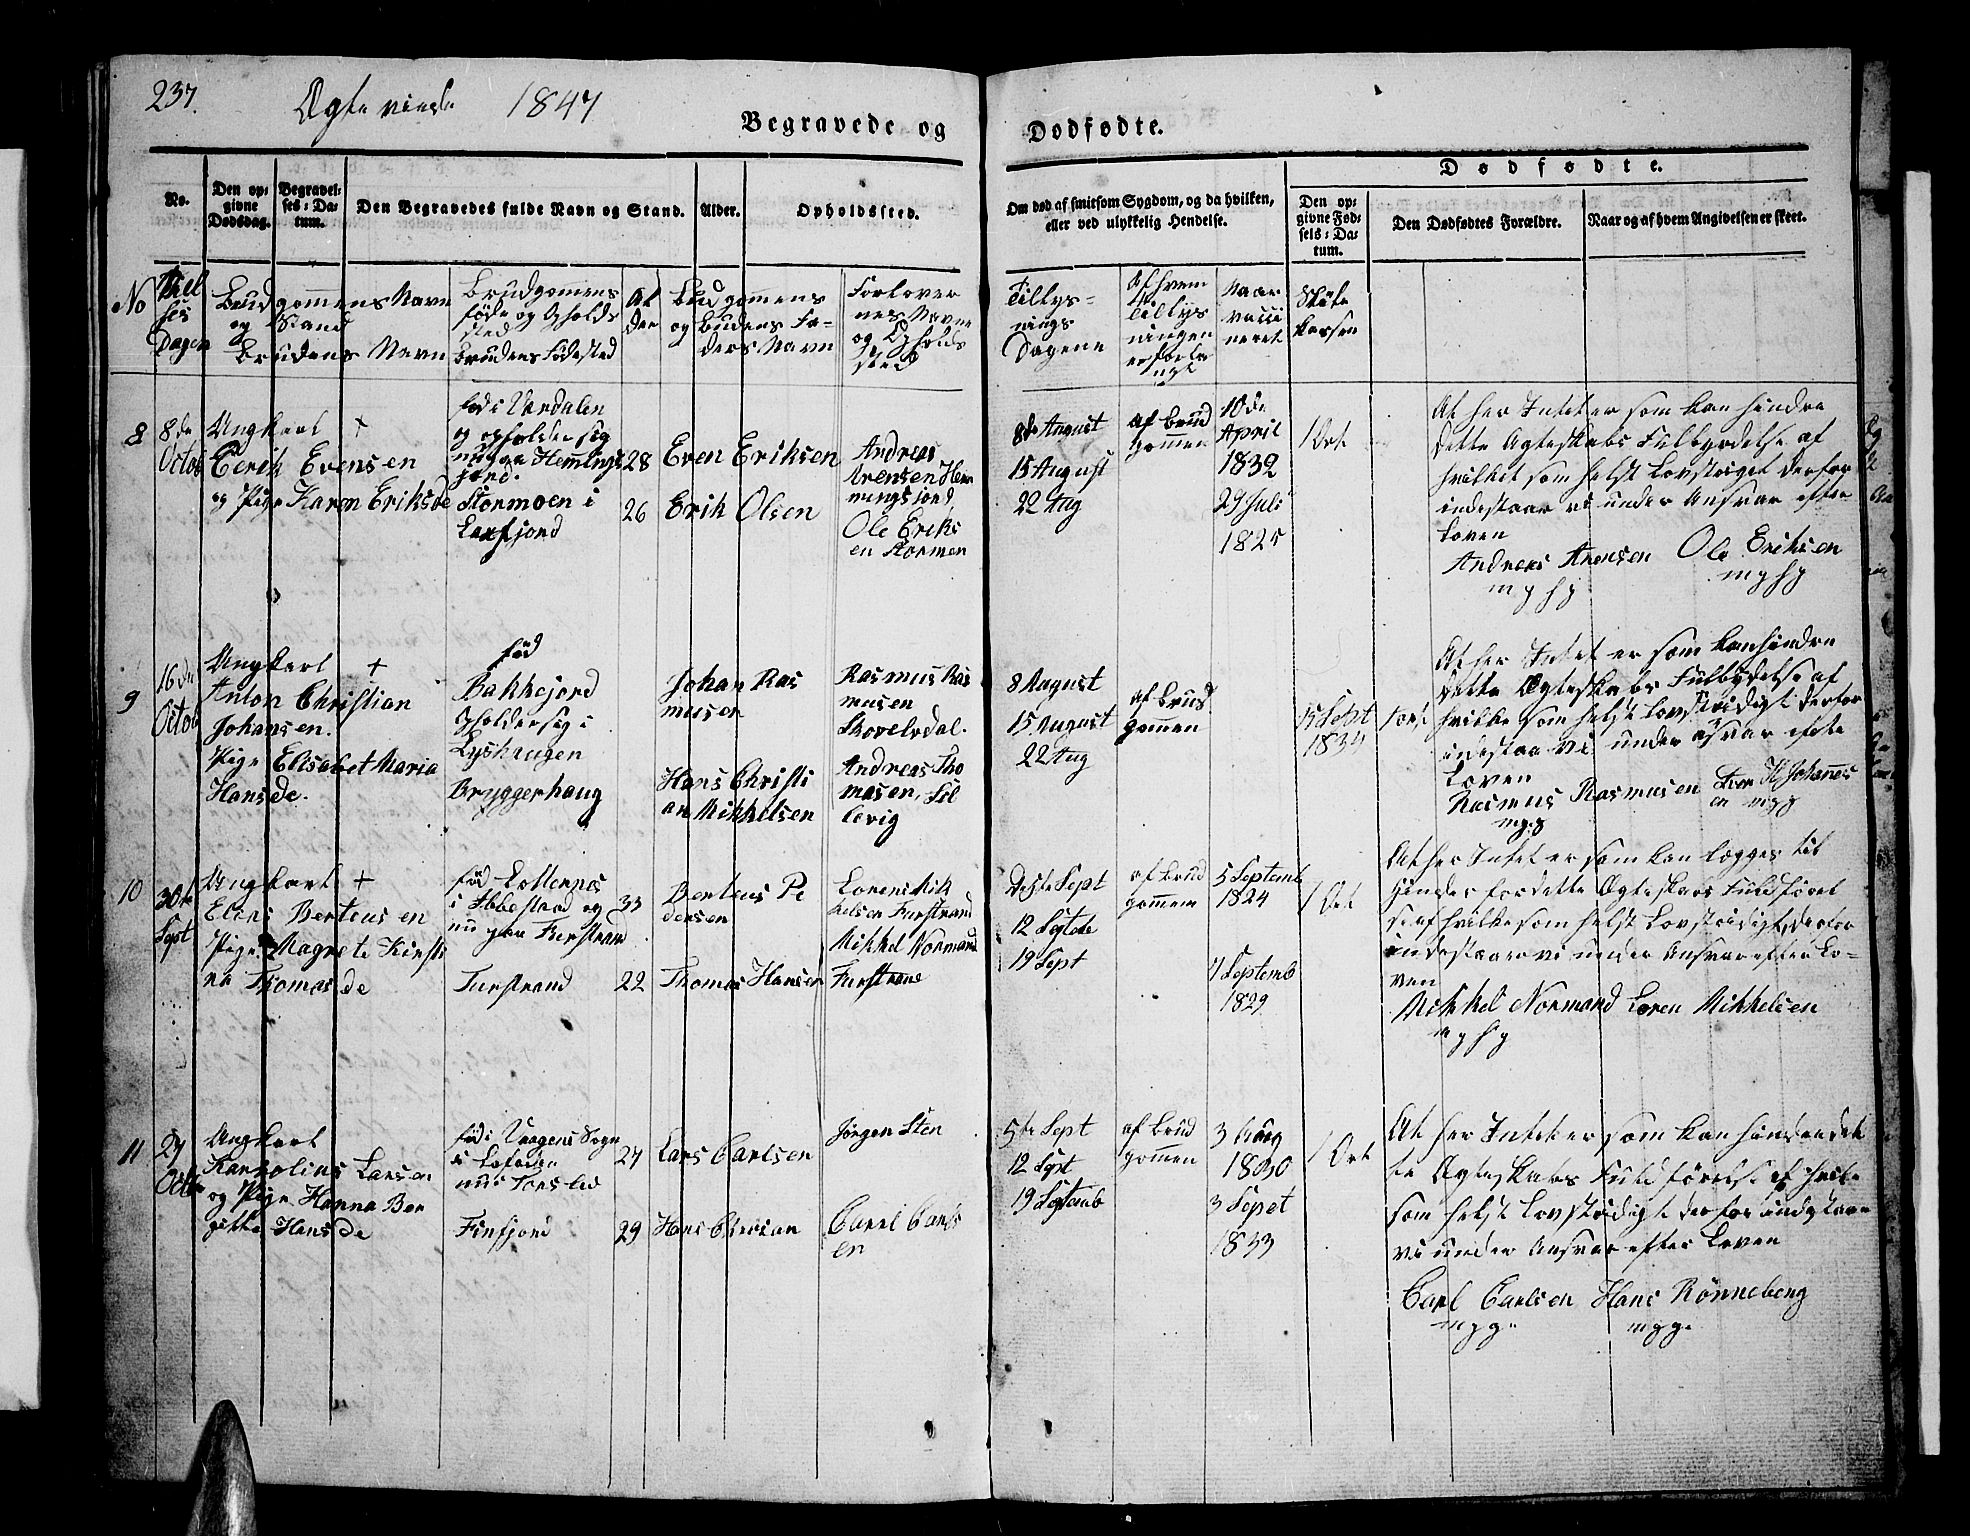 237.
Ægteviede 1847
Begravede og
Dødfødte.
No.
Den op=
givne
Dødsdag.
Begravel=
ses=Da=
tum.
Den Begravedes fulde Navn og Stand.
Alder.
Opholdssted.
Om død af smitsom Sygdom, og da hvilken,
eller ved ulykkelig Hendelse.
Dødfødte.
Den op=
givne Fød=
sels=Da=
tum.
Den Dødfødtes Forældre.
Naar og af hvem Angivelsen er skeet.
No
Viel
ses
Dagen
Brudgommens Navn
og Stand
og
Brudens Navn
Brudgomens
føde og Opholds
sted
Brudens Fødested
Al
der
Brudgommens
og Brudens Fa=
ders Navn
Forlover
nes Navne
og Opholds
sted
Tillys=
nings
Dagene
Af hvem
Tillys
ningen
er forla
ngt
Naar
vacci
neret
8
8de
Octob
Ungkarl +
Eerik Evensen
og Pige Karen Eriksde
fød i Værdalen
og opholder sig
nu paa Hemmings
jord.
Stormoen i
28
26
Even Eriksen
Erik Olsen
Andreas
Arensen Hem
mingsjord
Ole Eriks
en Stormen
8de August
15 August
22 Aug
af Brud
gommen
10de
April
1832
29 Juli
1825
1 Ort
At her Intet er som kan hindre
dette Ægteskabs Fuldbyrdelse af
hvilket som helst Lovstridigt derfor
indestaar vi under Ansvar efter
Loven
Andreas Arensen Ole Eriksen
9
16de
Octob
Ungkarl +
Anton Christian
Johansen.
Pige Elisabet Maria
Hansde.
fød
Bakkejord
Opholder sig i
Lyshaugen
Bryggerhaug
Johan Ras
musen
Hans Christi
an Mikkelsen
Rasmus Ras
musen
Skovelvdal.
Andreas Tho
masen, Sil
levig
8 August
15 August
22 Aug
af Brud
gommen
15 Sept
1834
At her Intet er som kan hindre
dette Ægteskabs Fuldbydelse af
hvilke som helst Lovstridigt derfor
indestaa vi under Asvar efte
Loven
Rasmus Rasmusen
10
30te
Sept
Ungkarl +
Elens Berteusen
Pige Magrete Kirsti
na Thomasde
i Ibbestad og
nu paa Furstrand
Furstrand
33
22
Berteus Pe
dersen
Thomas Hansen
Lorens Mik
kelsen Furstrand
Mikkel Normand
Furstrand
5te Sept
12 Septbe
19 Sept
af Brud
gommem
5 Septemb
1824
7 Septemb
1829
1 Ort
At her Intet er som kan lægges til
Hinder for dette Ægteskabs Fuldførel
se af hvilke som helst Lovstridigt, derfor
indestaaer vi under Ansvar efter Lo=
ven
Mikkel Normand Loren Mikkelsen
11
27
Octb
Ungkarl
Karrolius Larsen
og Pige Hanna Ber
gitte Hansde
fød i Vaagens Sogn
i Lofoden
Finfjord
27
29
Lars Carlsen
Hans Christian
Jørgen Sten
Carrl Carls
en
5te Sept
12 Sept
19 Septemb
af Brud
gommen
3 Aug
1830
3 Sepet
1833
1 Ort
At her Intet er som kan hindre det
te Ægteskabs Fuldførelse af hvilke
som helst Lovstridigt derfor indestaae
vi under Ansvar efter Loven
Carl Carlsen Hans Rønneberg